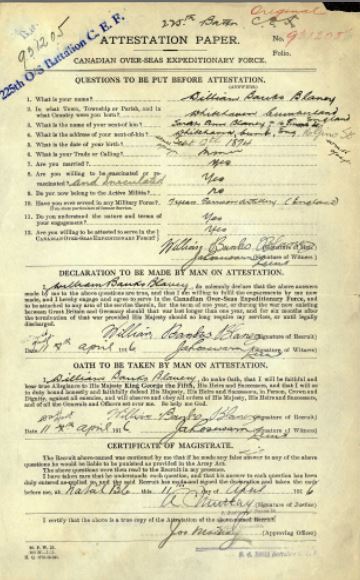 Original
225th Battn C.E.F.
931205
225th O/S Battalion C.E.F.
ATTESTATION PAPER.
No. 931205
Folio.
CANADIAN OVER-SEAS EXPEDITIONARY FORCE.
QUESTIONS TO BE PUT BEFORE ATTESTATION.
(ANSWERS)
1. What is your name? William Banks Blaney
2. In what Town, Township or Parish, and in what Country were you born? Whitehaven Cumberland England
3. What is the name of your next-of-kin? Sarah Ann Blaney
4. What is the address of your next-of-kin? Whitehaven, Cumb, Eng
5. What is the date of your birth? 1894
6. What is your Trade or Calling? Miner
7. Are you married? Yes
8. Are you willing to be vaccinated or re-vaccinated? and inoculated Yes
9. Do you now belong to the Active Militia? No
10. Have you ever served in any Military Force? Garrison Artillery (England)
If so, state particulars of former Service.
11. Do you understand the nature and terms of your engagement? Yes
12. Are you willing to be attested to serve in the CANADIAN OVER-SEAS EXPEDITIONARY FORCE? Yes
William Banks Blaney (Signature of Man).
(Signature of Witness)
DECLARATION TO BE MADE BY MAN ON ATTESTATION.
I, William Banks Blaney, do solemnly declare that the above answers
made by me to the above questions are true, and that I am willing to fulfil the engagements by me now
made, and I hereby engage and agree to serve in the Canadian Over-Seas Expeditionary Force, and
to be attached to any arm of the service therein, for the term of one year, or during the war now existing
between Great Britain and Germany should that war last longer than one year, and for six months after
the termination of that war provided His Majesty should so long require my services, or until legally
discharged.
William Banks Blaney (Signature of Recruit)
April 1916 (Signature of Witness)
OATH TO BE TAKEN BY MAN ON ATTESTATION.
I, William Banks Blaney, do make Oath, that I will be faithful and
bear true Allegiance to His Majesty King George the Fifth, His Heirs and Successors, and that I will as
in duty bound honestly and faithfully defend His Majesty, His Heirs and Successors, in Person, Crown and
Dignity, against all enemies, and will observe and obey all orders of His Majesty, His Heirs and Successors,
and of all the Generals and Officers set over me. So help me God.
William Banks Blaney (Signature of Recruit)
Date 11th April 1916 (Signature of Witness)
CERTIFICATE OF MAGISTRATE.
The Recruit above-named was cautioned by me that if he made any false answer to any of the above
questions he would be liable to be punished as provided in the Army Act.
The above questions were then read to the Recruit in my presence.
I have taken care that he understands each question, and that his answer to each question has been
duly entered as replied to, and the said Recruit has made and signed the declaration and taken the oath
before me, at this 11th day of April 1916
(Signature of Justice)
I certify that the above is a true copy of the Attestation of the above-named Recruit.
(Approving Officer)